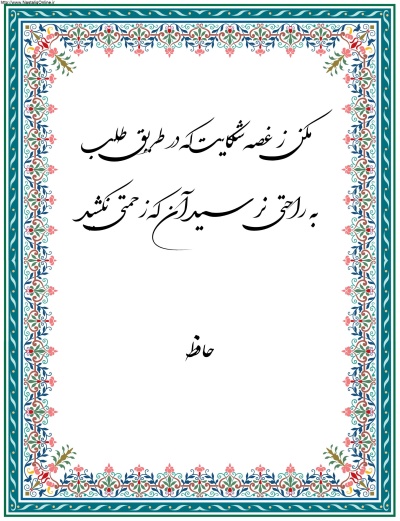 http://www.NastaliqOnline.ir
مکن ز غصه شکایت که در طریق طلب
به راحتی نرسید آن که زحمتی نکشید
حافظ